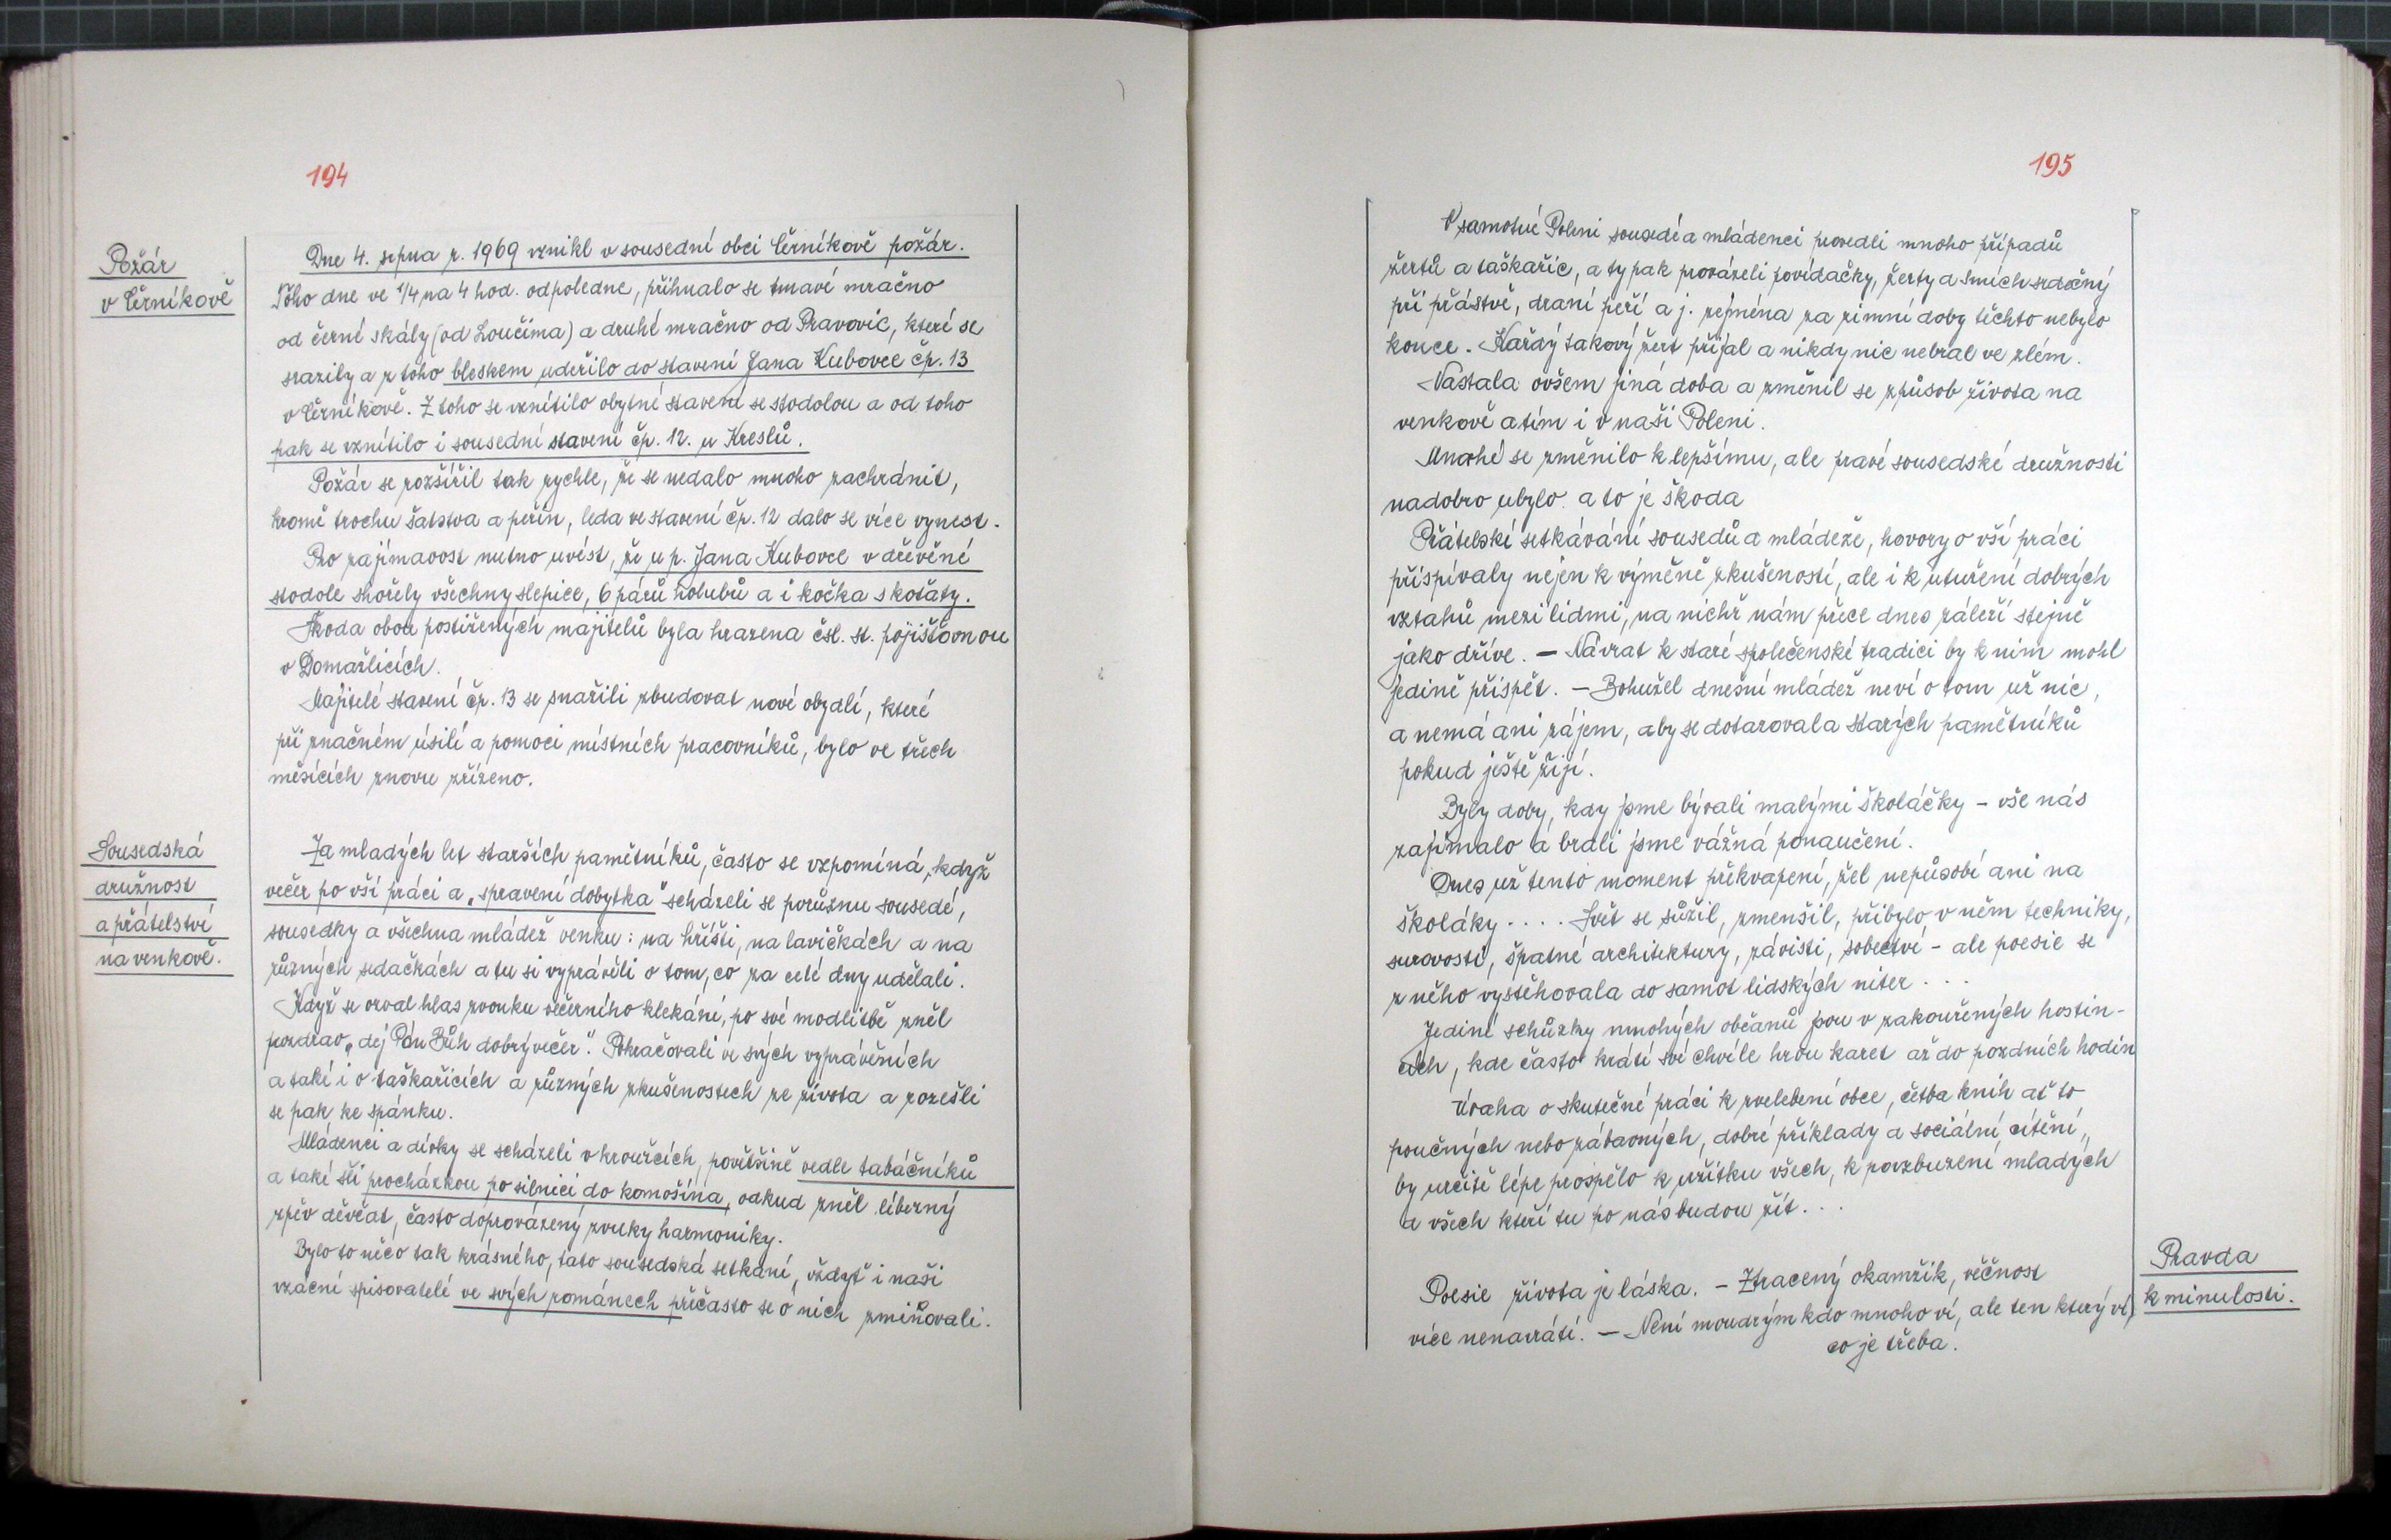 194
Požár
v Černíkově
Dne 4. srpna r. 1969 vznikl v sousední obci Černíkově požár.
Toho dne ve 1/4 na 4 hod. odpoledne, přihnalo se tmavé mračno
od černé skály (od Loučima) a druhé mračno od Pravovic, které se
srazily a z toho bleskem udeřilo do stavení Jana Kubovce čp. 13
v Černíkově. Z toho se vznítilo obytné stavení se stodolou a od toho
pak se vznítilo i sousední stavení čp. 12. u Kreslů.
Požár se rozšířil tak rychle, že se nedalo mnoho zachránit,
kromě trochu šatstva a peřin, leda ve stavení čp. 12 dalo se více vynest.
Pro zajímavost nutno uvést, že u p. Jana Kubovce v dřevěné
stodole shořely všechny slepice, 6 párů holubů a i kočka s koťaty.
Škoda obou postižených majitelů byla hrazena čsl. st. pojišťovnou
v Domažlicích.
Majitelé stavení čp. 13 se snažili zbudovat nové obydlí, které
při značném úsilí a pomoci místních pracovníků, bylo ve třech
měsících znovu zřízeno.
Sousedská
družnost
a přátelství
na venkově.
Za mladých let starších pamětníků, často se vzpomíná, když
večer po vší práci a „spravení dobytka" scházeli se porůznu sousedé,
sousedky a všechna mládež venku: na hříšti, na lavičkách a na
různých sedačkách a tu si vyprávěli o tom, co za celé dny udělali.
Když se orval hlas zvonku večerního klekání, po své modlitbě zněl
pozdrav „dej Pán Bůh dobrý večer". Pokračovali ve svých vyprávěních
a také i o taškařicích a různých zkušenostech ze života a rozešli
se pak ke spánku.
Mládenci a dívky se scházeli v kroužcích, povětšině vedle tabáčníků
a také šli procházkou po silnici do komošína, odkud zněl líbezný
zpěv děvčat, často doprovázený zvuky harmoniky.
Bylo to něco tak krásného, tato sousedská setkání, vždyť i naši
vzácní spisovatelé ve svých románech přečasto se o nich zmiňovali.
195
V samotné Poleni sousedé a mládenci provedli mnoho případů
žertů a taškařic, a ty pak provázeli povídačky, žerty a smích srdečný
při přástvě, draní peří a j. zejména za zimní doby těchto nebylo
konce. Každý takový žert přijal a nikdy nic nebral ve zlém.
Nastala ovšem jiná doba a změnil se způsob života na
venkově a tím i v naší Poleni.
Mnohé se změnilo k lepšímu, ale pravé sousedské družnosti
nadobro ubylo a to je škoda
Přátelské setkávání sousedů a mládeže, hovory o vší práci
přispívaly nejen k výměně zkušeností, ale i k utužení dobrých
vztahů mezi lidmi, na nichž nám přece dnes záleží stejně
jako dříve. — Návrat k staré společenské tradici by k nim mohl
jedině přispět. — Bohužel dnešní mládež neví o tom už nic,
a nemá ani zájem, aby se dotazovala starých pamětníků
pokud ještě žijí.
Byly doby, kdy jsme bývali malými školáčky - vše nás
zajímalo a brali jsme vážná ponaučení.
Dnes už tento moment překvapení, žel nepůsobí ani na
školáky .... Svět se sůžil, zmenšil, přibylo v něm techniky,
surovosti, špatné architektury, závisti, sobectví - ale poesie se
z něho vystěhovala do samot lidských niter ...
Jediné schůzky mnohých občanů jsou v zakouřených hostin-
cích, kde často krátí své chvíle hrou karet až do pozdních hodin
Úvaha o skutečné práci k zvelebení obce, četba knih ať to
poučných nebo zábavných, dobré příklady a sociální cítění,
by určitě lépe prospělo k užitku všech, k povzbuzení mladých
a všech kteří tu po nás budou žít ...
Pravda
k minulosti.
Poesie života je láska. - Ztracený okamžik, věčnost
více nenavrátí. — Není moudrým kdo mnoho ví, ale ten který ví,
co je třeba.